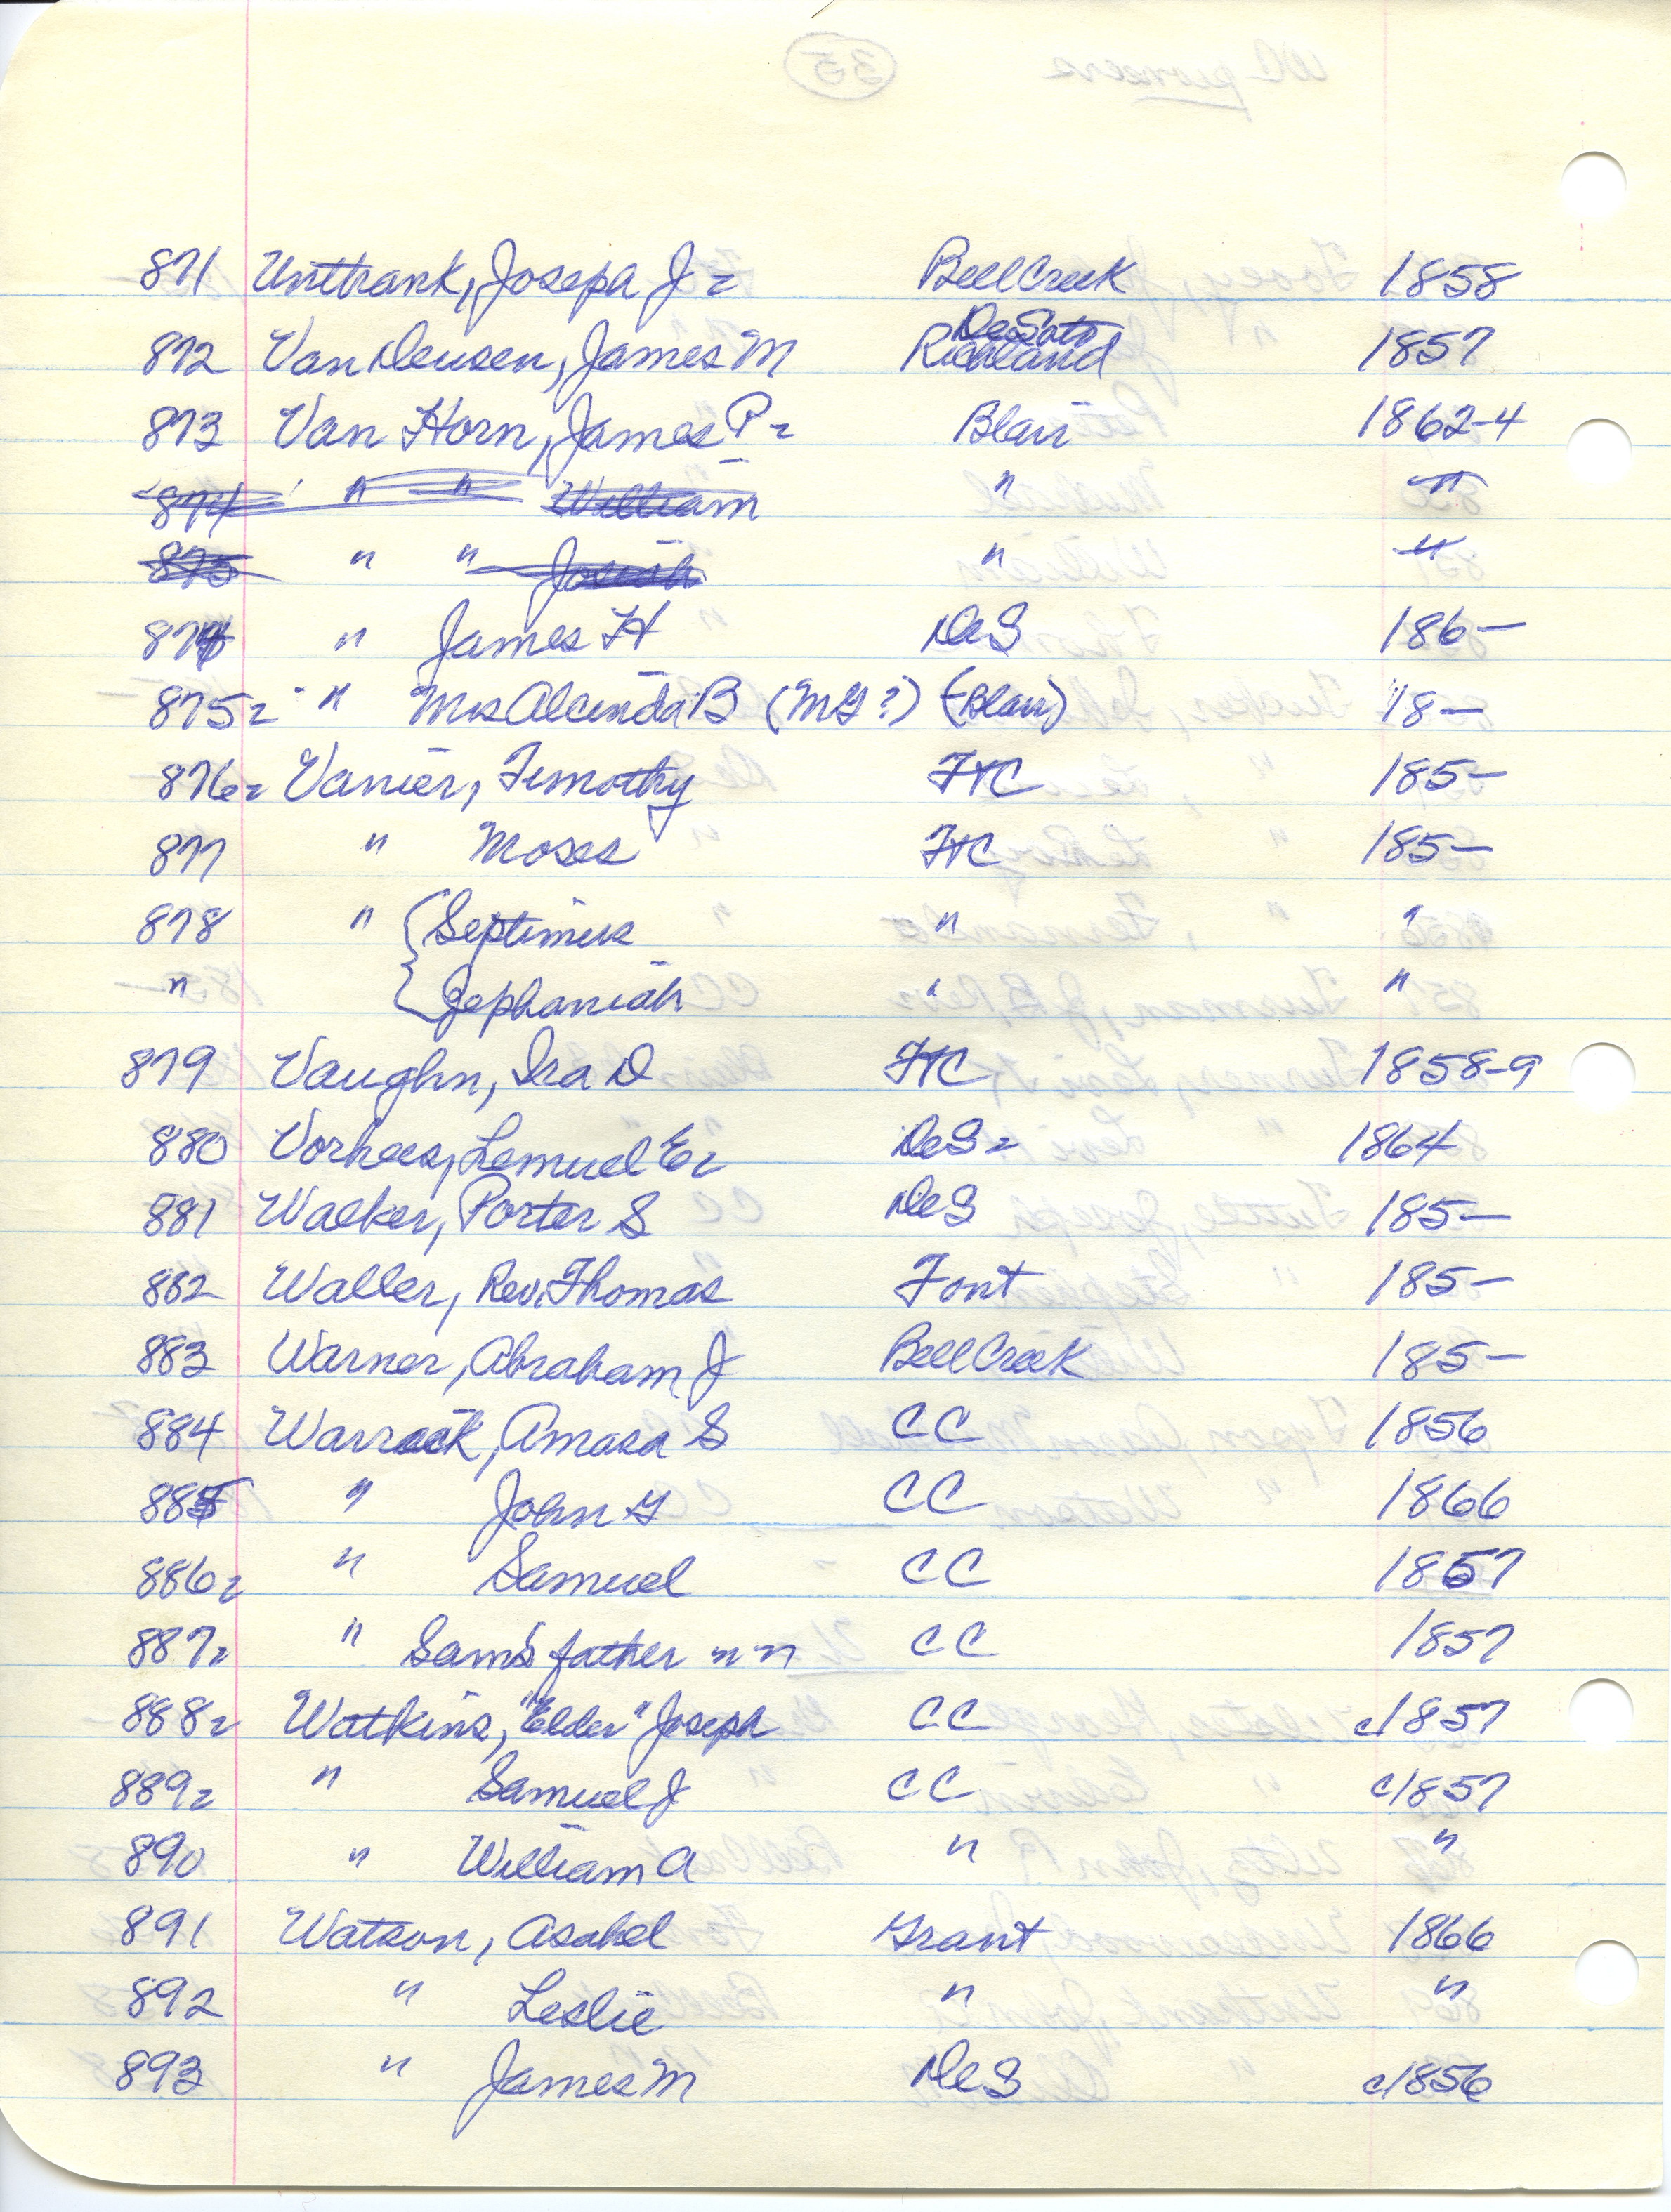 871 Unthank, Joseph J 2 Bell Creek 1858
DeSoto
872 Van Deusen, James M Richland 1857
873 Van Horn, James P 2 Blair 1862-4
874 " " William " "
875 " " Josiah " "
874 " James H DeS 186—
875 2 " Mrs Alcinda B (MG?) (Blair) 18—
876 2 Vanier, Timothy FtC 185—
877 " Moses FtC 185—
878 " { Septimus " "
" { Zephaniah " "
879 Vaughn, Ira D FtC 1858-9
880 Vorhees, Lemuel E 2 DeS 2 1864
881 Walker, Porter S DeS 185—
882 Waller, Rev. Thomas Font 185—
883 Warner, Abraham J Bell Creek 185—
884 Warrick, Amasa S CC 1856
885 " John G CC 1866
886 2 " Samuel CC 1857
887 2 " Sam's father nn CC 1857
888 2 Watkins, "Elder" Joseph CC c1857
889 2 " Samuel J CC c1857
890 " William A " "
891 Watson, Asahel Grant 1866
892 " Leslie " "
893 " James M DeS c1856